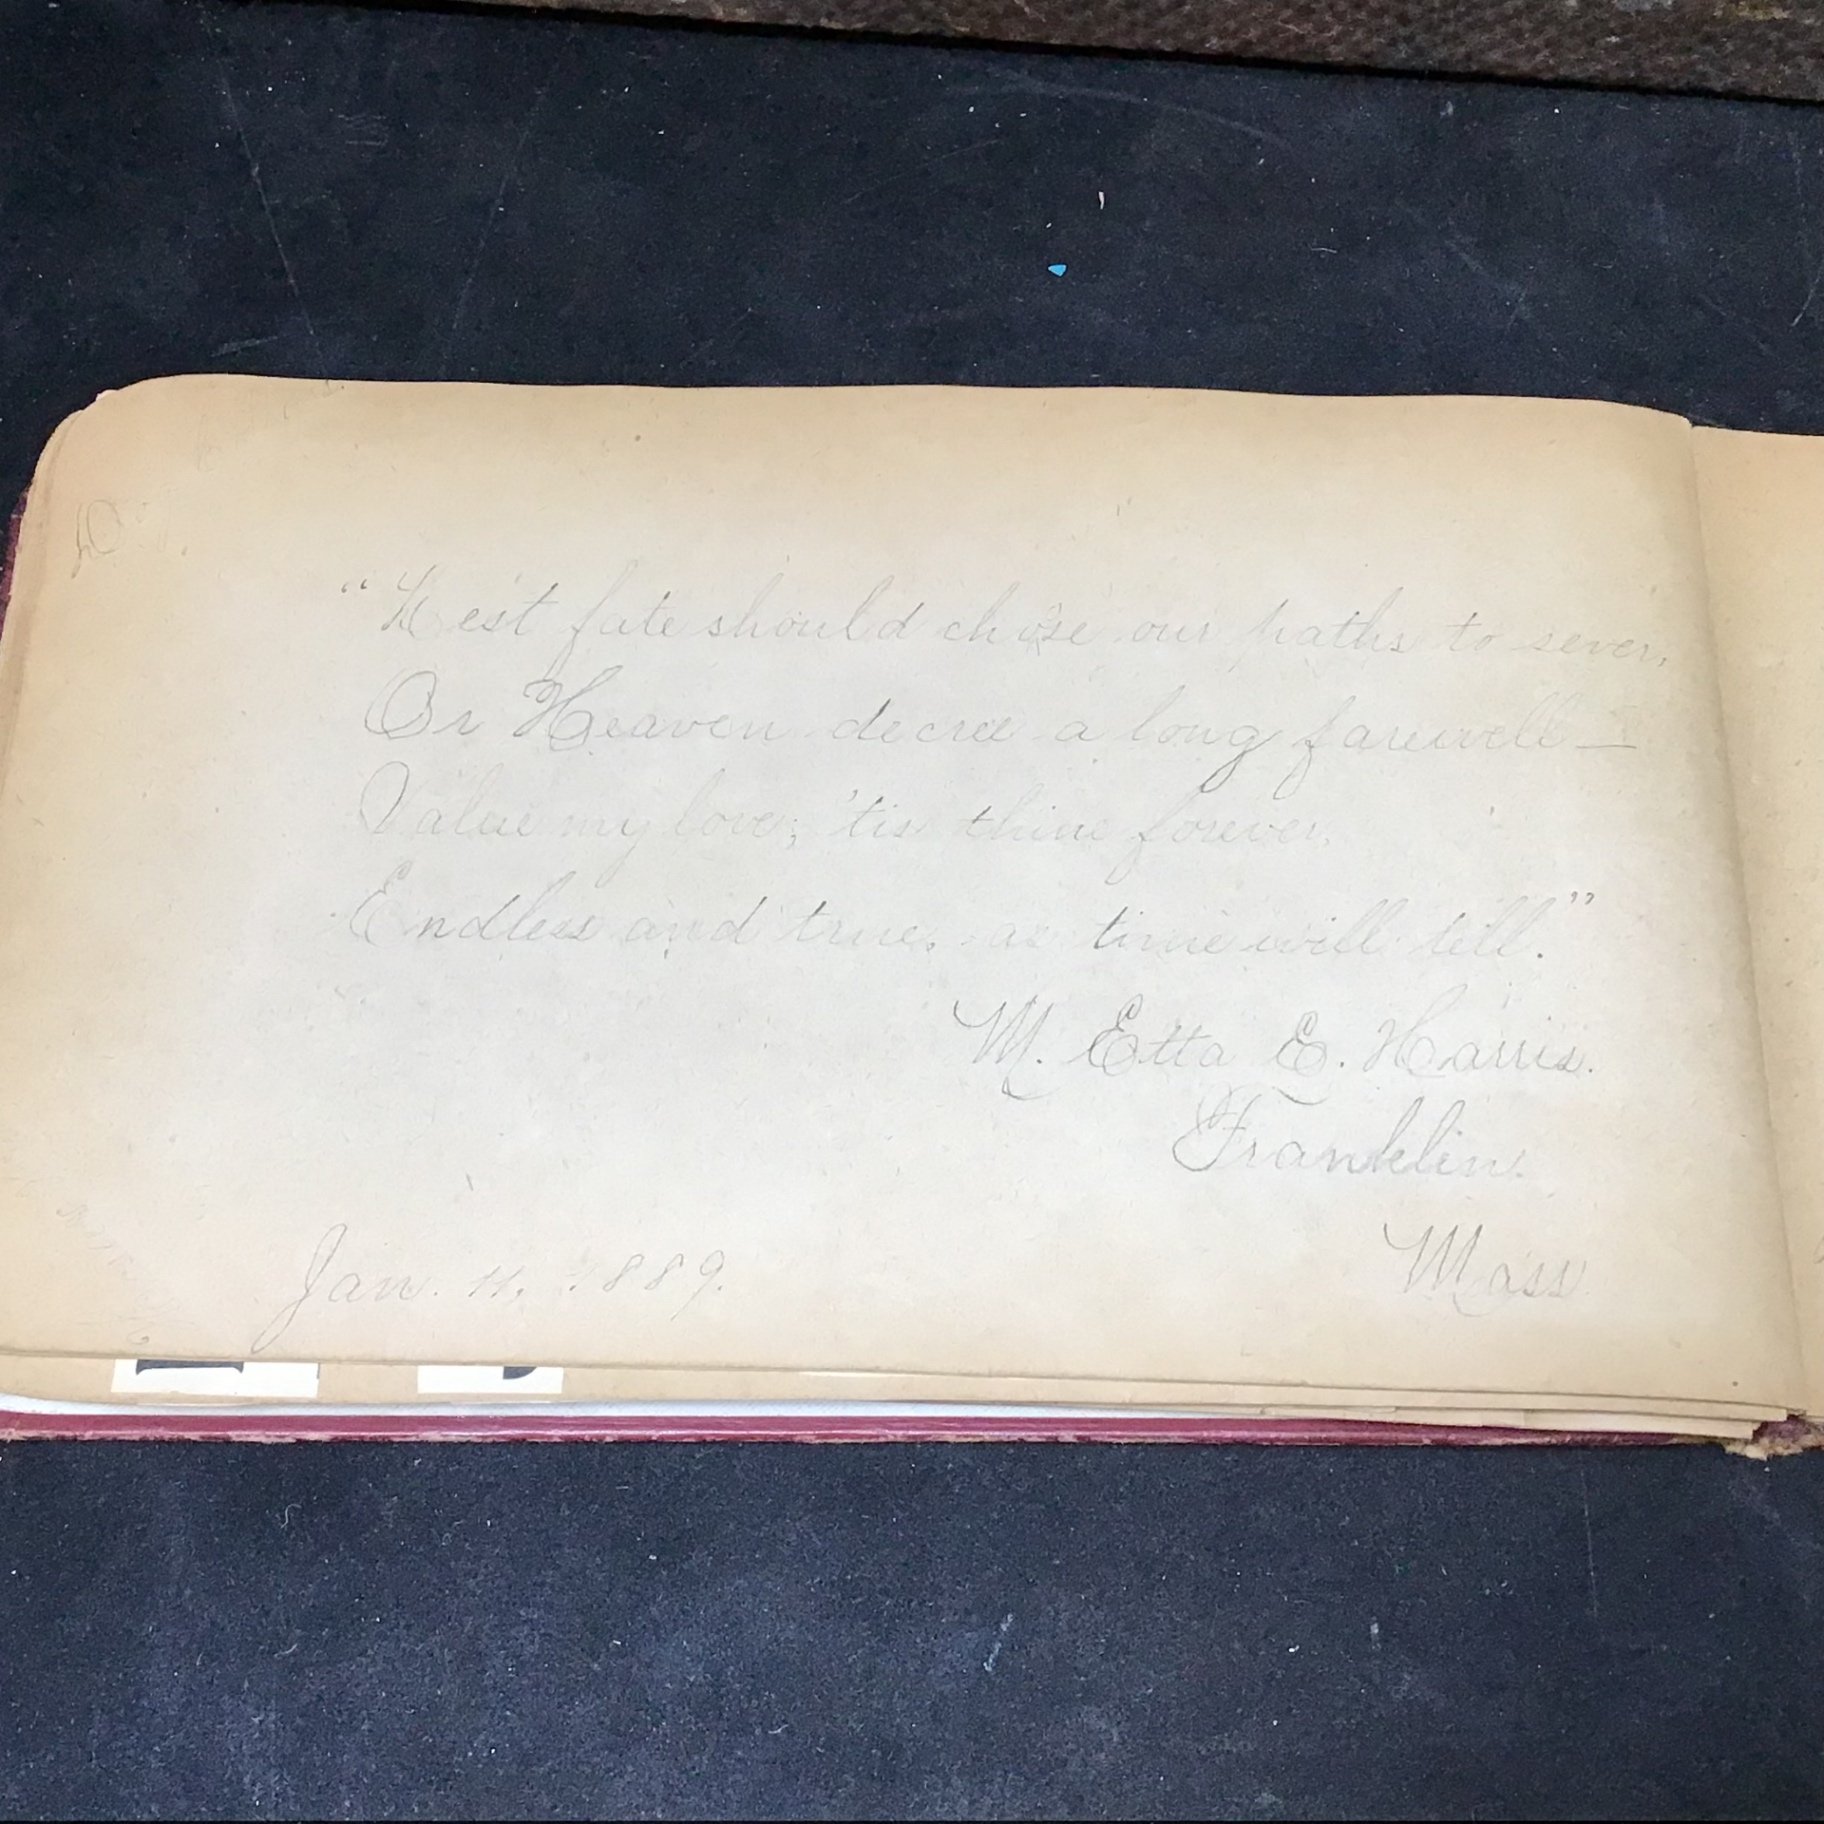 "Lest fate should chose our paths to sever,
Or Heaven decree a long farewell —
Value my love; 'tis thine forever,
Endless and true, as time will tell."
M. Etta E. Harris.
Franklin.
Mass
Jan. 11, 1889.